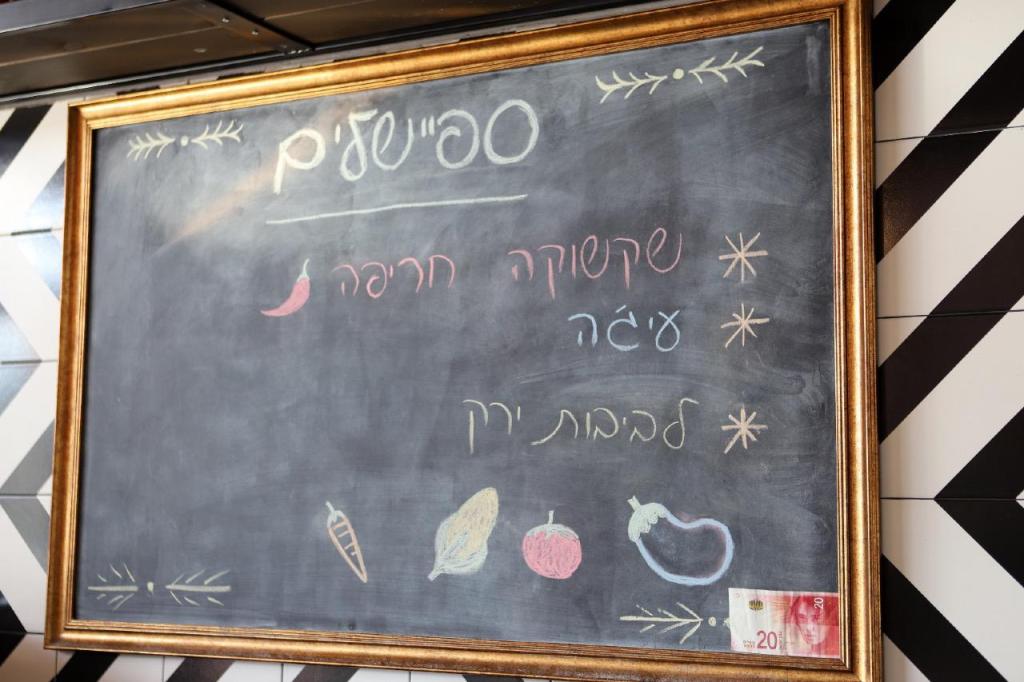 ספיישלים
שקשוקה חריפה
עיג'ה
לביבות ירק
20
20